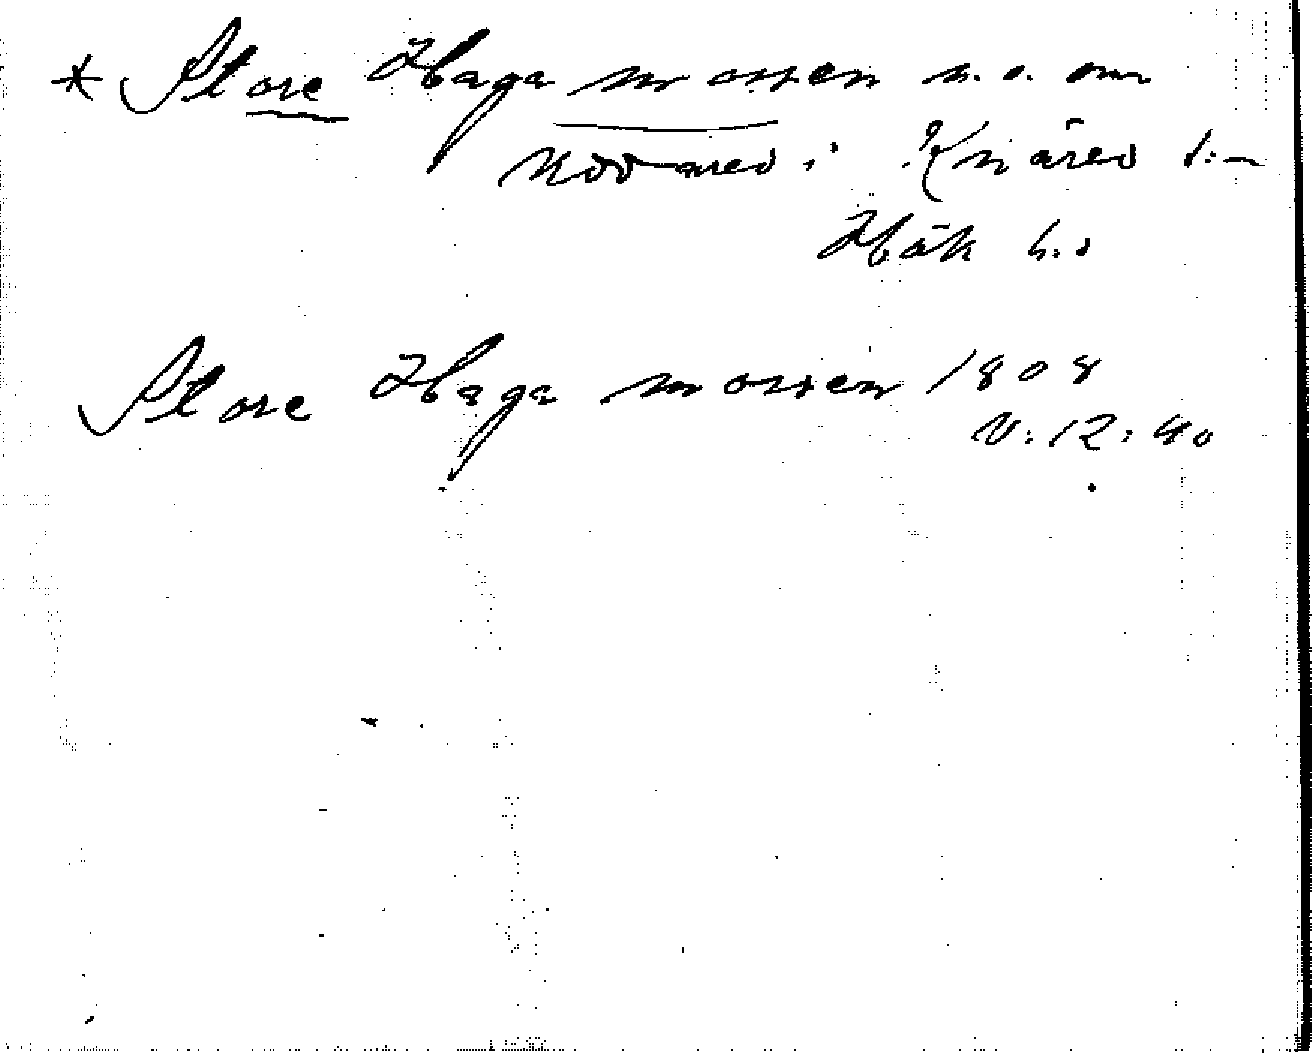 * Store Haga mossen n. o. om
i Knäred s:n
Hök h.d
Store Haga mossen 1808
V: 12: 40